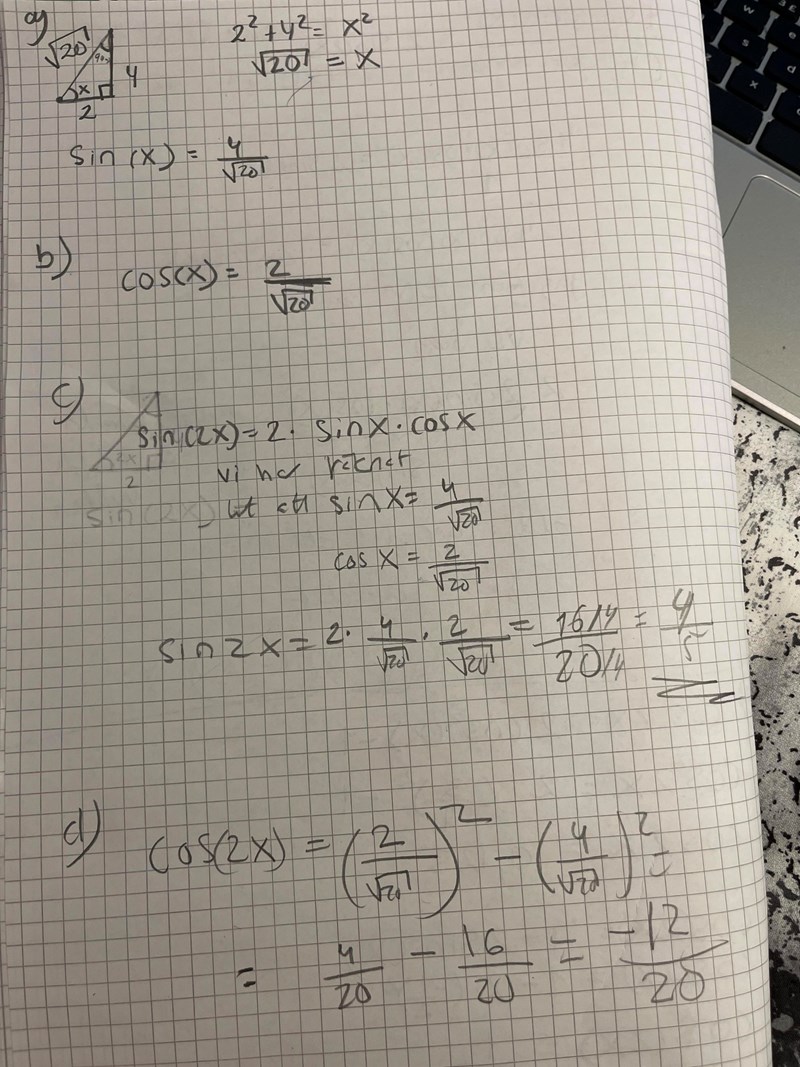 a)
√20
4
x
2
2² + 4² = x²
√20 = x
sin(x) = 4/√20
b)
cos(x) = 2/√20
c)
2
sin(2x) = 2 · sin x · cos x
vi har räknat
ut att sin x = 4/√20
cos x = 2/√20
sin 2x = 2 · 4/√20 · 2/√20 = 16/4 / 20/4 = 4/5
d)
cos(2x) = (2/√20)² - (4/√20)² =
= 4/20 - 16/20 = -12/20